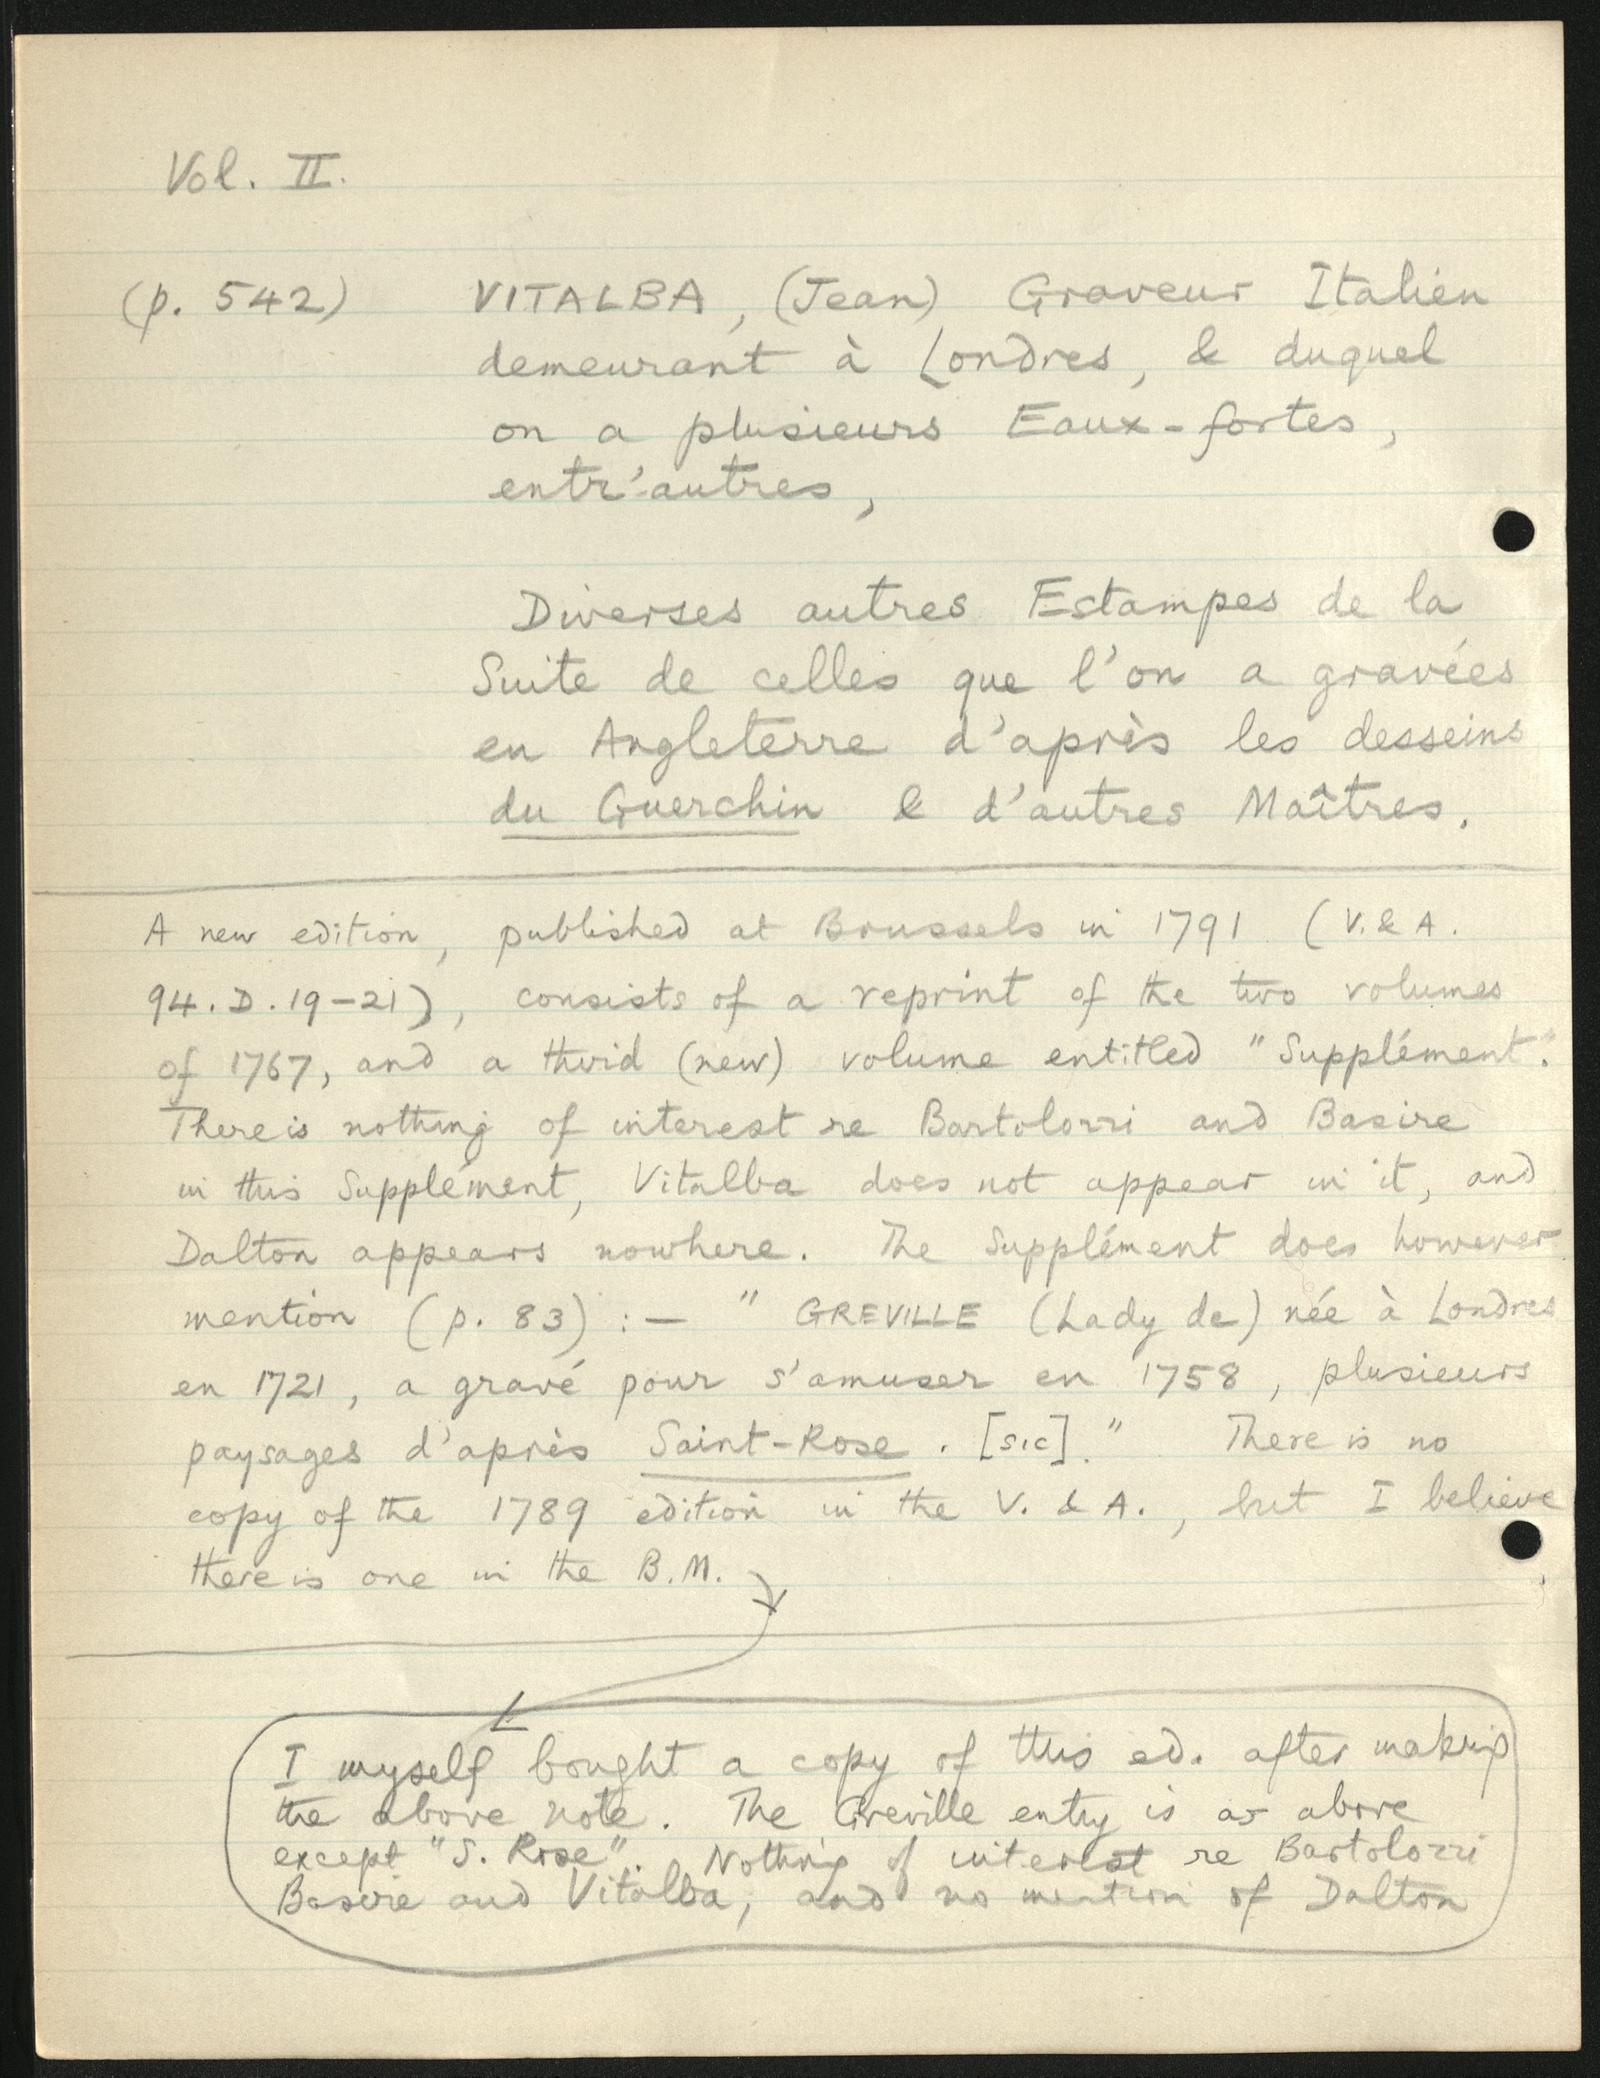 Vol. II.
(p. 542) VITALBA, (Jean) Graveur Italien
demeurant à Londres, & duquel
on a plusieurs Eaux-fortes,
entr'autres,
Diverses autres Estampes de la
Suite de celles que l'on a gravées
en Angleterre d'après les desseins
du Guerchin & d'autres Maîtres.
A new edition, published at Brussels in 1791 (V. & A.
94.D.19-21), consists of a reprint of the two volumes
of 1767, and a third (new) volume entitled "Supplément".
There is nothing of interest re Bartolozzi and Basire
in this Supplément, Vitalba does not appear in it, and
Dalton appears nowhere. The Supplément does however
mention (p. 83) :— " GREVILLE (Lady de) née à Londres
en 1721, a gravé pour s'amuser en 1758, plusieurs
paysages d'après Saint-Rose. [sic]." There is no
copy of the 1789 edition in the V. & A., but I believe
there is one in the B.M.
I myself bought a copy of this ed. after making
the above note. The Greville entry is as above
except "S. Rose". Nothing of interest re Bartolozzi
Basire and Vitalba, and no mention of Dalton